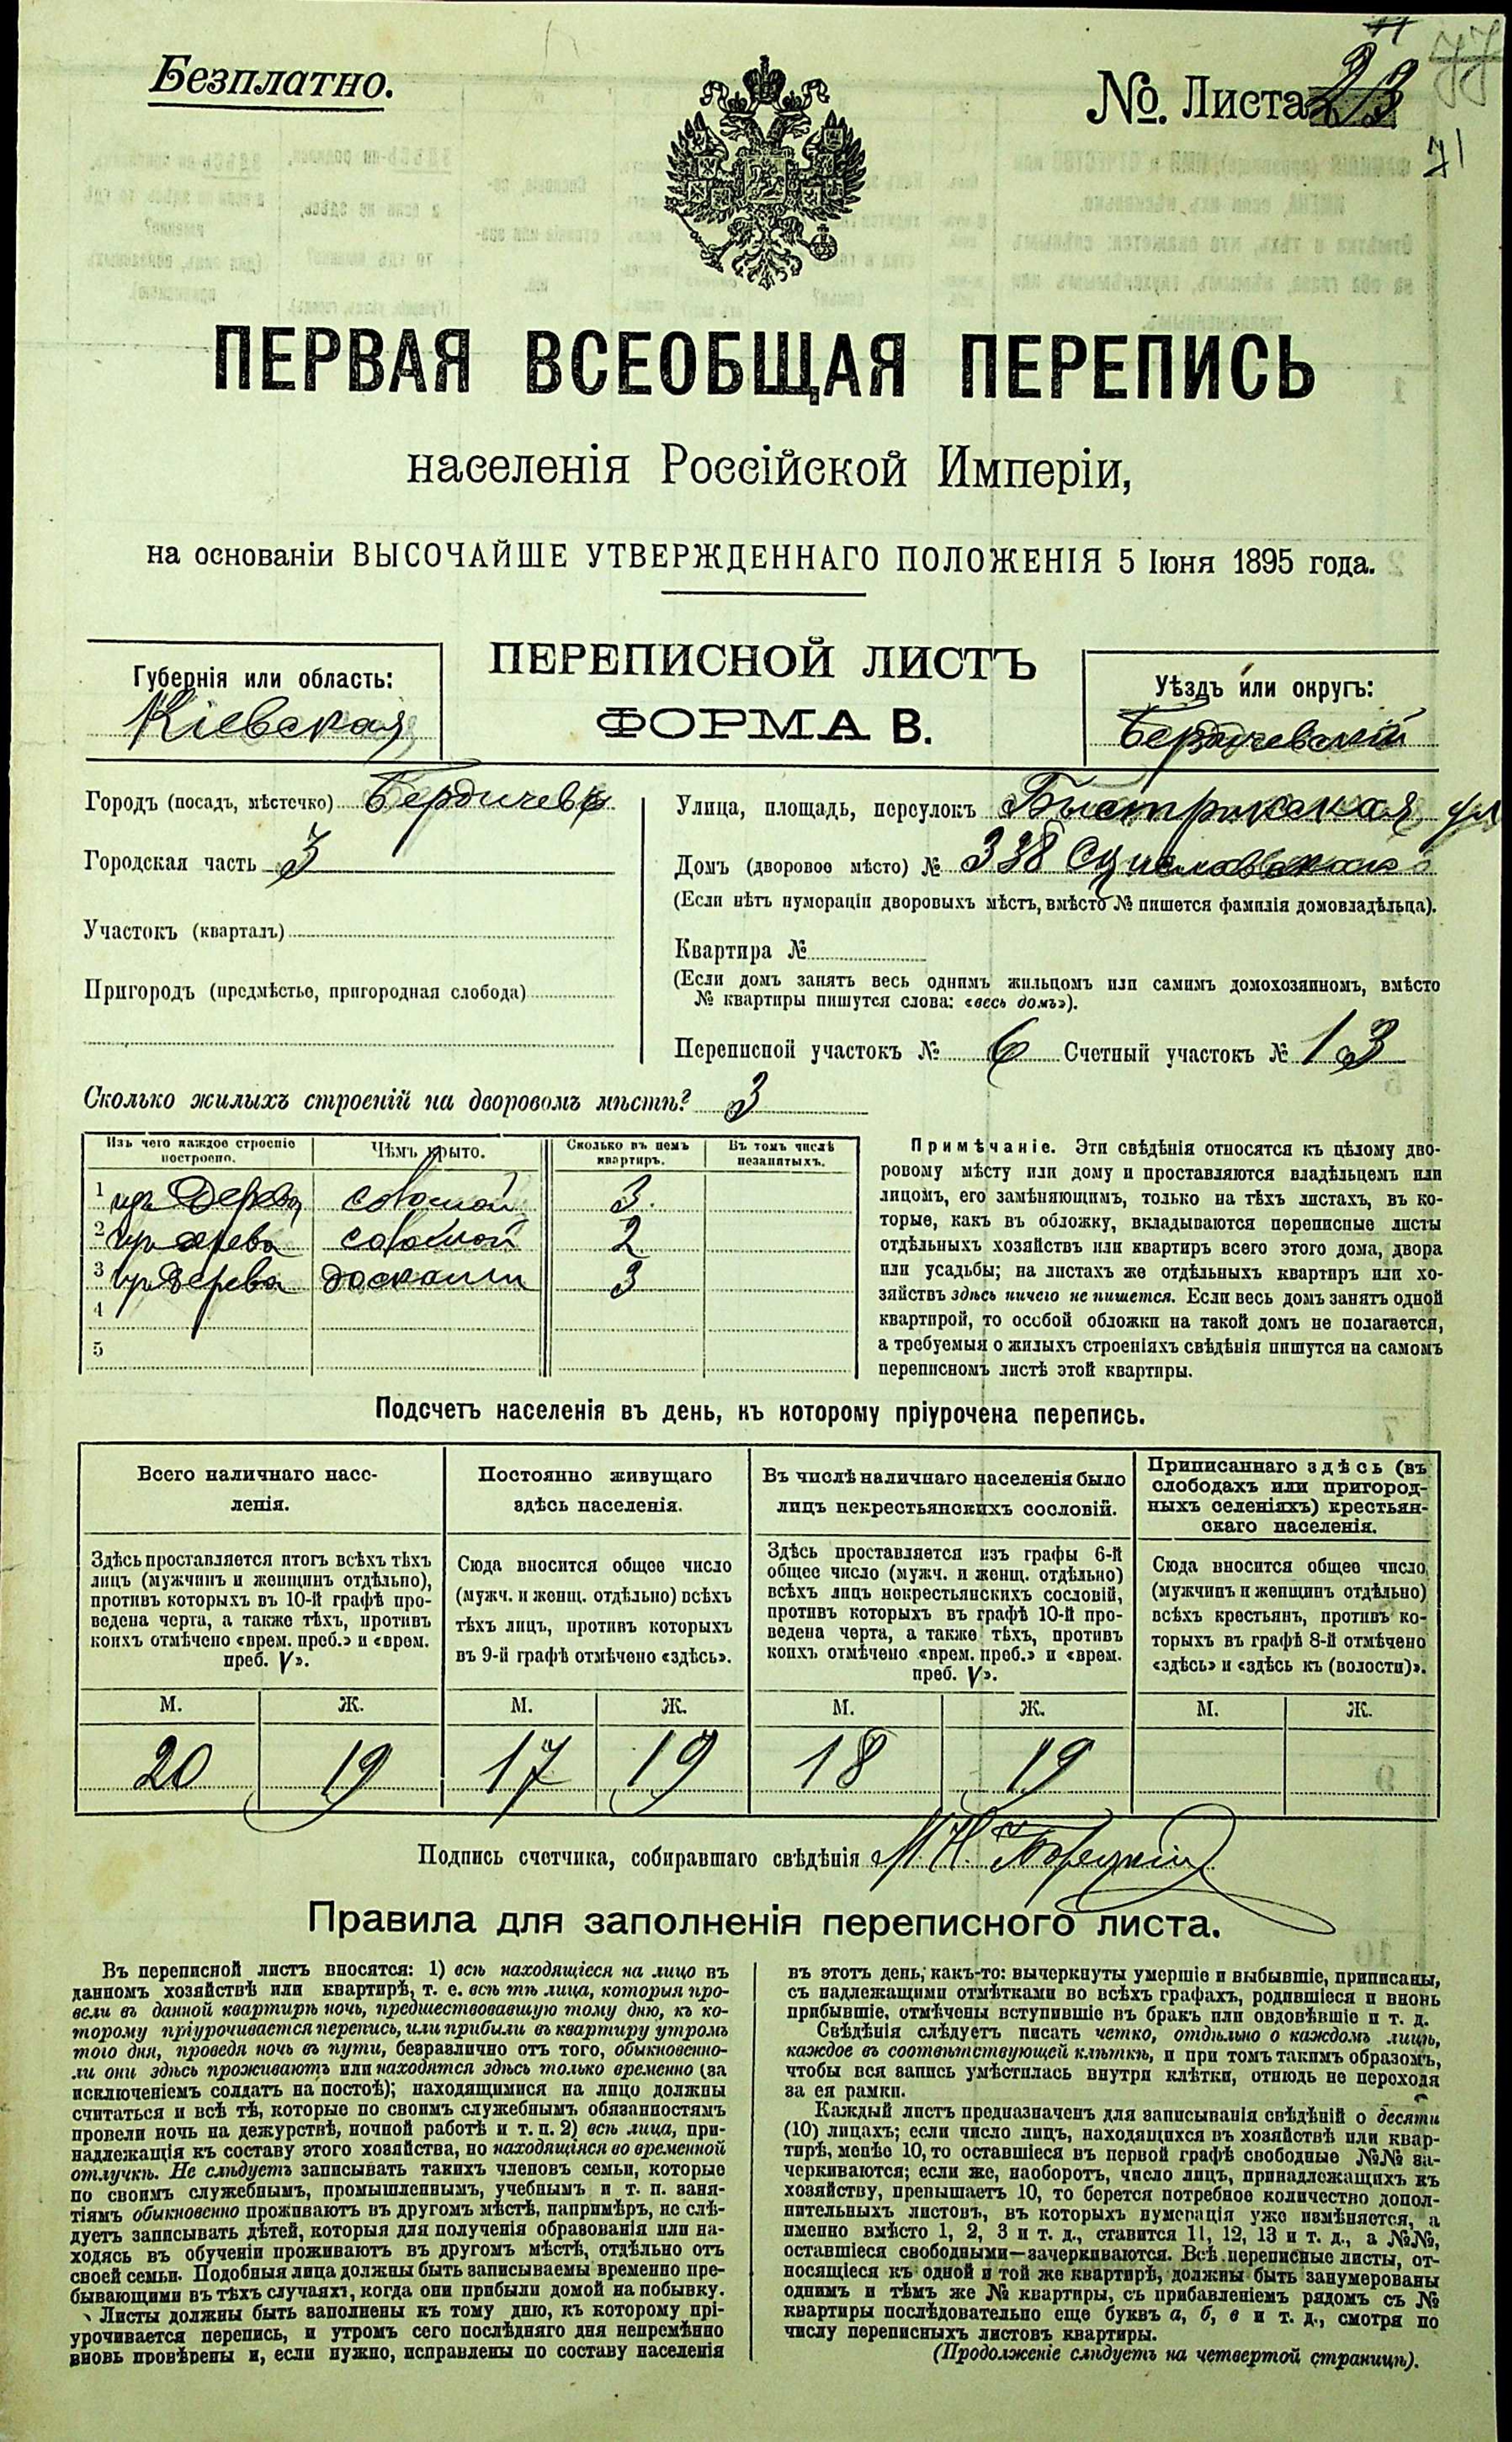 Безплатно.
№. Листа 23
77
71
ПЕРВАЯ ВСЕОБЩАЯ ПЕРЕПИСЬ
населенія Россійской Имперіи,
на основаніи ВЫСОЧАЙШЕ УТВЕРЖДЕННАГО ПОЛОЖЕНІЯ 5 Іюня 1895 года.
ПЕРЕПИСНОЙ ЛИСТЪ
ФОРМА В.
Губернія или область:
Кіевская
Уѣздъ или округъ:
Бердичевскій
Городъ (посадъ, мѣстечко) Бердичевъ
Городская часть 3
Участокъ (кварталъ)
Пригородъ (предмѣстье, пригородная слобода)
Улица, площадь, переулокъ Быстрикская ул
Домъ (дворовое мѣсто) № 338
(Если нѣтъ нумераціи дворовыхъ мѣстъ, вмѣсто № пишется фамилія домовладѣльца).
Квартира №
(Если домъ занятъ весь однимъ жильцомъ или самимъ домохозяиномъ, вмѣсто
№ квартиры пишутся слова: «весь домъ»).
Переписной участокъ № 6 Счетный участокъ № 13
Сколько жилыхъ строеній на дворовомъ мѣстѣ? 3
Изъ чего каждое строеніе построено. Чѣмъ крыто. Сколько въ немъ квартиръ. Въ томъ числѣ незанятыхъ.
1 изъ дерева соломой 3.
2 изъ дерева соломой 2
3 изъ дерева досками 3
4
5
Примѣчаніе. Эти свѣдѣнія относятся къ цѣлому дво-
ровому мѣсту или дому и проставляются владѣльцемъ или
лицомъ, его замѣняющимъ, только на тѣхъ листахъ, въ ко-
торые, какъ въ обложку, вкладываются переписные листы
отдѣльныхъ хозяйствъ или квартиръ всего этого дома, двора
или усадьбы; на листахъ же отдѣльныхъ квартиръ или хо-
зяйствъ здѣсь ничего не пишется. Если весь домъ занятъ одной
квартирой, то особой обложки на такой домъ не полагается,
а требуемыя о жилыхъ строеніяхъ свѣдѣнія пишутся на самомъ
переписномъ листѣ этой квартиры.
Подсчетъ населенія въ день, къ которому пріурочена перепись.
Всего наличнаго насе-
ленія.
Здѣсь проставляется итогъ всѣхъ тѣхъ
лицъ (мужчинъ и женщинъ отдѣльно),
противъ которыхъ въ 10-й графѣ про-
ведена черта, а также тѣхъ, противъ
коихъ отмѣчено «врем. преб.» и «врем.
преб. V».
М. Ж.
20 19
Постоянно живущаго
здѣсь населенія.
Сюда вносится общее число
(мужч. и женщ. отдѣльно) всѣхъ
тѣхъ лицъ, противъ которыхъ
въ 9-й графѣ отмѣчено «здѣсь».
М. Ж.
17 19
Въ числѣ наличнаго населенія было
лицъ некрестьянскихъ сословій.
Здѣсь проставляется изъ графы 6-й
общее число (мужч. и женщ. отдѣльно)
всѣхъ лицъ некрестьянскихъ сословій,
противъ которыхъ въ графѣ 10-й про-
ведена черта, а также тѣхъ, противъ
коихъ отмѣчено «врем. преб.» и «врем.
преб. V».
М. Ж.
18 19
Приписаннаго здѣсь (въ
слободахъ или пригород-
ныхъ селеніяхъ) крестьян-
скаго населенія.
Сюда вносится общее число
(мужчинъ и женщинъ отдѣльно)
всѣхъ крестьянъ, противъ ко-
торыхъ въ графѣ 8-й отмѣчено
«здѣсь» и «здѣсь къ (волости)».
М. Ж.
Подпись счетчика, собиравшаго свѣдѣнія М. Н. Борецкій
Правила для заполненія переписного листа.
Въ переписной листъ вносятся: 1) всѣ находящіеся на лицо въ
данномъ хозяйствѣ или квартирѣ, т. е. всѣ тѣ лица, которыя про-
вели въ данной квартирѣ ночь, предшествовавшую тому дню, къ ко-
торому пріурочивается перепись, или прибыли въ квартиру утромъ
того дня, проведя ночь въ пути, безразлично отъ того, обыкновенно-
ли они здѣсь проживаютъ или находятся здѣсь только временно (за
исключеніемъ солдатъ на постоѣ); находящимися на лицо должны
считаться и всѣ тѣ, которые по своимъ служебнымъ обязанностямъ
провели ночь на дежурствѣ, ночной работѣ и т. п. 2) всѣ лица, при-
надлежащія къ составу этого хозяйства, но находящіяся во временной
отлучкѣ. Не слѣдуетъ записывать такихъ членовъ семьи, которые
по своимъ служебнымъ, промышленнымъ, учебнымъ и т. п. заня-
тіямъ обыкновенно проживаютъ въ другомъ мѣстѣ, напримѣръ, не слѣ-
дуетъ записывать дѣтей, которыя для полученія образованія или на-
ходясь въ обученіи проживаютъ въ другомъ мѣстѣ, отдѣльно отъ
своей семьи. Подобныя лица должны быть записываемы временно пре-
бывающими въ тѣхъ случаяхъ, когда они прибыли домой на побывку.
Листы должны быть заполнены къ тому дню, къ которому прі-
урочивается перепись, и утромъ сего послѣдняго дня непремѣнно
вновь провѣрены и, если нужно, исправлены по составу населенія
въ этотъ день, какъ-то: вычеркнуты умершіе и выбывшіе, приписаны,
съ надлежащими отмѣтками во всѣхъ графахъ, родившіеся и вновь
прибывшіе, отмѣчены вступившіе въ бракъ или овдовѣвшіе и т. д.
Свѣдѣнія слѣдуетъ писать четко, отдѣльно о каждомъ лицѣ,
каждое въ соотвѣтствующей клѣткѣ, и при томъ такимъ образомъ,
чтобы вся запись умѣстилась внутри клѣтки, отнюдь не переходя
за ея рамки.
Каждый листъ предназначенъ для записыванія свѣдѣній о десяти
(10) лицахъ; если число лицъ, находящихся въ хозяйствѣ или квар-
тирѣ, менѣе 10, то оставшіеся въ первой графѣ свободные №№ за-
черкиваются; если же, наоборотъ, число лицъ, принадлежащихъ къ
хозяйству, превышаетъ 10, то берется потребное количество допол-
нительныхъ листовъ, въ которыхъ нумерація уже измѣняется, а
именно вмѣсто 1, 2, 3 и т. д., ставится 11, 12, 13 и т. д., а №№,
оставшіеся свободными—зачеркиваются. Всѣ переписные листы, от-
носящіеся къ одной и той же квартирѣ, должны быть занумерованы
однимъ и тѣмъ же № квартиры, съ прибавленіемъ рядомъ съ №
квартиры послѣдовательно еще буквъ а, б, в и т. д., смотря по
числу переписныхъ листовъ квартиры.
(Продолженіе слѣдуетъ на четвертой страницѣ).